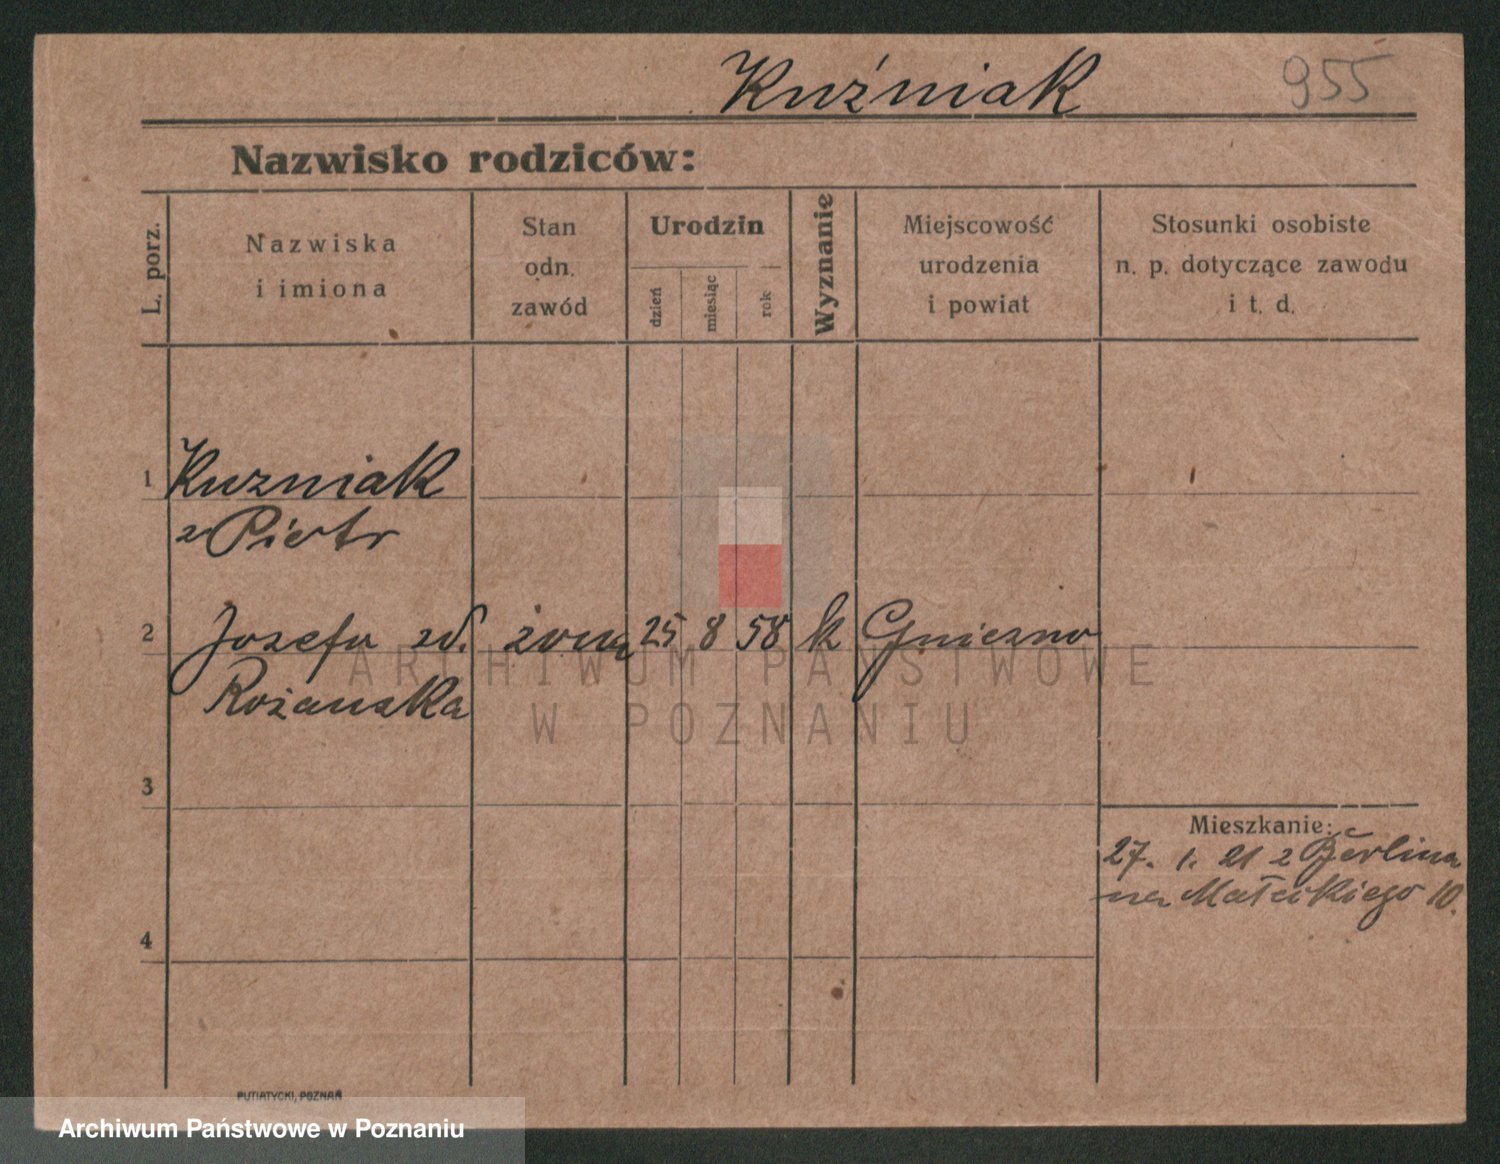 Kuźniak 955
Nazwisko rodziców:
L. porz.
Nazwiska
i imiona
Stan
odn.
zawód
Urodzin
dzień
miesiąc
rok
Wyznanie
Miejscowość
urodzenia
i powiat
Stosunki osobiste
n. p. dotyczące zawodu
i t. d.
1 Kuzniak
Piotr
2 Jozefa zd. żona 25 8 58 k Gniezno
Rożanska
3
Mieszkanie:
27. 1. 21 z Berlina
na Małeckiego 10.
4
ARCHIWUM PAŃSTWOWE
W POZNANIU
PUTIATYCKI, POZNAŃ
Archiwum Państwowe w Poznaniu